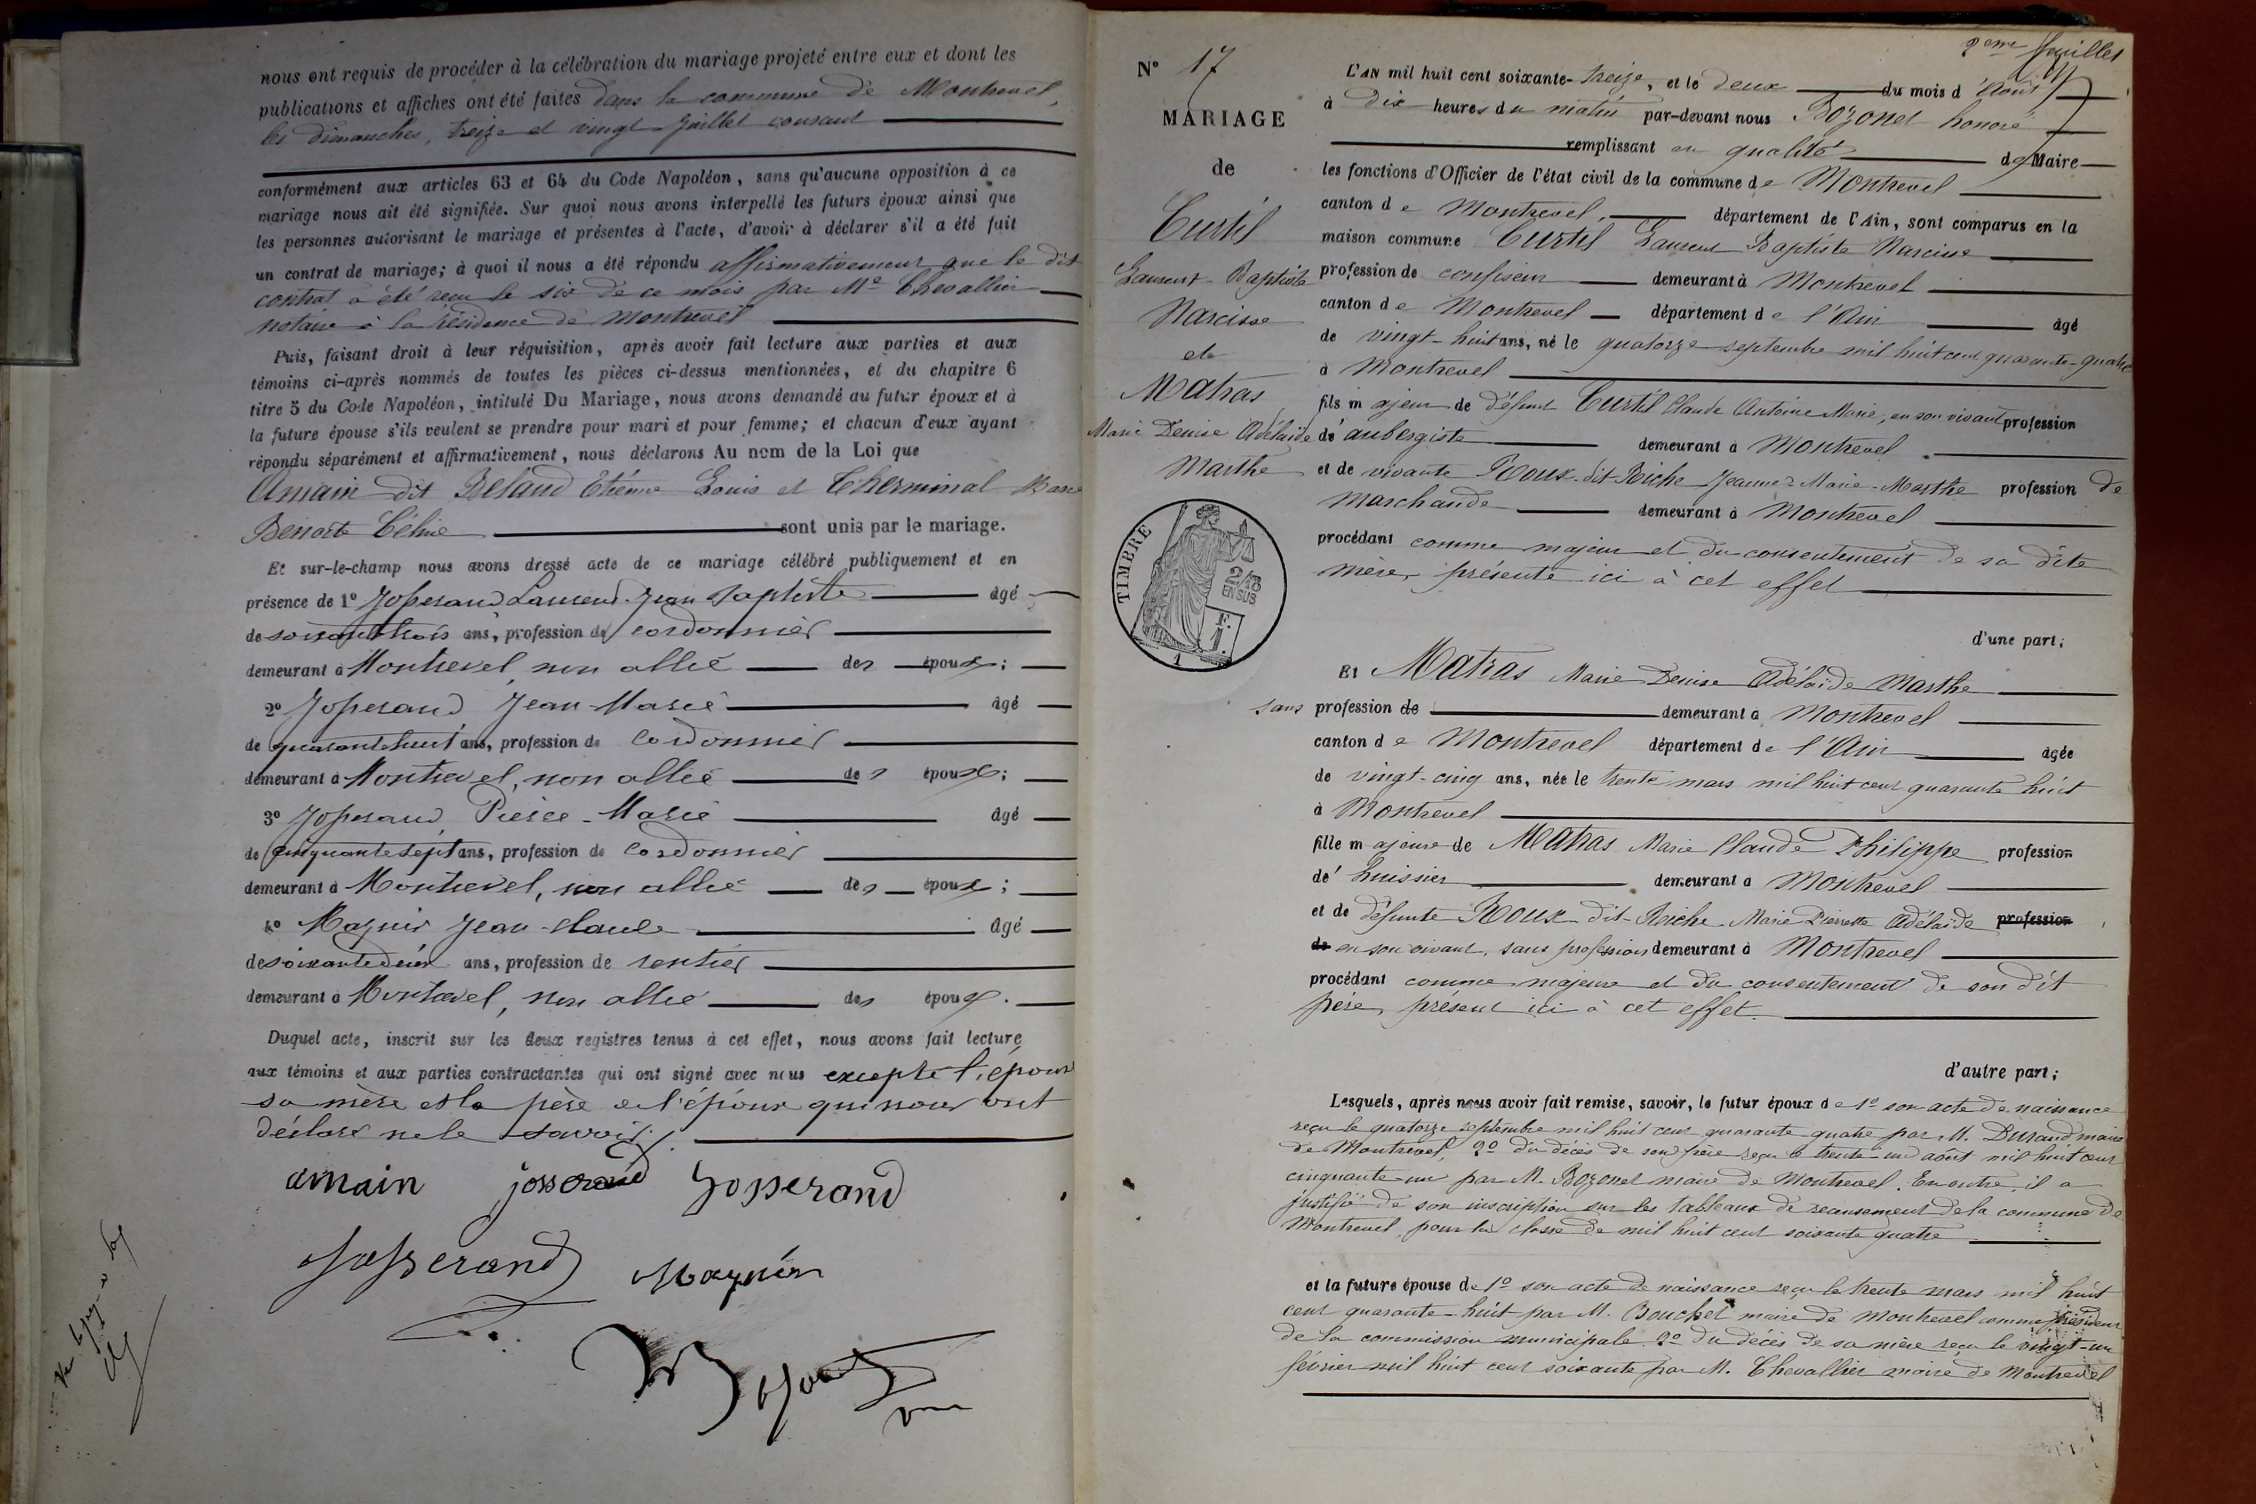 nous ont requis de procéder à la célébration du mariage projeté entre eux et dont les
publications et affiches ont été faites dans la commune de Montrevel,
les dimanches, treize et vingt juillet courant
conformément aux articles 63 et 64 du Code Napoléon, sans qu'aucune opposition à ce
mariage nous ait été signifiée. Sur quoi nous avons interpellé les futurs époux ainsi que
les personnes autorisant le mariage et présentes à l'acte, d'avoir à déclarer s'il a été fait
un contrat de mariage; à quoi il nous a été répondu affirmativement que le dit
contrat a été reçu le six de ce mois par Me Chevallier
notaire à la résidence de Montrevel
Puis, faisant droit à leur réquisition, après avoir fait lecture aux parties et aux
témoins ci-après nommés de toutes les pièces ci-dessus mentionnées, et du chapitre 6
titre 5 du Code Napoléon, intitulé Du Mariage, nous avons demandé au futur époux et à
la future épouse s'ils veulent se prendre pour mari et pour femme; et chacun d'eux ayant
répondu séparément et affirmativement, nous déclarons Au nom de la Loi que
Amain dit Beland Etienne Louis et Cherminal Marie
Benoite Céline sont unis par le mariage.
Et sur-le-champ nous avons dressé acte de ce mariage célébré publiquement et en
présence de 1° Josserand Laurent Jean Baptiste âgé
de soixante trois ans, profession de cordonnier
demeurant à Montrevel, non allié des époux;
2° Josserand Jean-Marie âgé
de quarante huit ans, profession de cordonnier
demeurant à Montrevel, non allié des époux;
3° Josserand Pierre-Marie âgé
de cinquante sept ans, profession de cordonnier
demeurant à Montrevel, non allié des époux;
4° Magnin Jean-Claude âgé
de soixante deux ans, profession de rentier
demeurant à Montrevel, non allié des époux.
Duquel acte, inscrit sur les deux registres tenus à cet effet, nous avons fait lecture
aux témoins et aux parties contractantes qui ont signé avec nous excepté l'épouse
sa mère et le père de l'époux qui nous ont
déclaré ne le savoir.
amain josserand Josserand
Josserand Magnin
Bozonet
2eme feuillet
N° 17
MARIAGE
de
Curtil
Laurent-Baptiste
Narcisse
et
Matras
Marie Denise Adélaïde
Marthe
TIMBRE
2/10
EN SUS
F.
1.
1
L'AN mil huit cent soixante-treize, et le deux du mois d'Août
à dix heures du matin par-devant nous Bozonet honoré
remplissant en qualité de Maire
les fonctions d'Officier de l'état civil de la commune de Montrevel
canton de Montrevel, département de l'Ain, sont comparus en la
maison commune Curtil Laurent Baptiste Narcisse
profession de confiseur demeurant à Montrevel
canton de Montrevel département de l'Ain âgé
de vingt-huit ans, né le quatorze septembre mil huit cent quarante-quatre
à Montrevel
fils majeur de défunt Curtil Claude Antoine Marie, en son vivant profession
d'aubergiste demeurant à Montrevel
et de vivante Roux-dit-Riche Jeanne-Marie-Marthe profession de
Marchande demeurant à Montrevel
procédant comme majeur et du consentement de sa dite
mère, présente ici à cet effet
d'une part;
Et Matras Marie Denise Adélaïde Marthe
sans profession de demeurant à Montrevel
canton de Montrevel département de l'Ain âgée
de vingt-cinq ans, née le trente mars mil huit cent quarante huit
à Montrevel
fille majeure de Matras Marie Claude Philippe profession
d'huissier demeurant à Montrevel
et de défunte Roux-dit-Riche Marie Pierrette Adélaïde profession
de en son vivant, sans profession demeurant à Montrevel
procédant comme majeure et du consentement de son dit
père, présent ici à cet effet.
d'autre part;
Lesquels, après nous avoir fait remise, savoir, le futur époux de 1° son acte de naissance
reçu le quatorze septembre mil huit cent quarante quatre par M. Durand maire
de Montrevel, 2° du décès de son père reçu le trente-un août mil huit cent
cinquante-un par M. Bozonet maire de Montrevel. En outre, il a
justifié de son inscription sur les tableaux de recensement de la commune de
Montrevel, pour la classe de mil huit cent soixante quatre
et la future épouse de 1° son acte de naissance reçu le trente mars mil huit
cent quarante-huit par M. Bouchet maire de Montrevel comme président
de la commission municipale. 2° du décès de sa mère reçu le vingt-un
février mil huit cent soixante par M. Chevallier maire de Montrevel